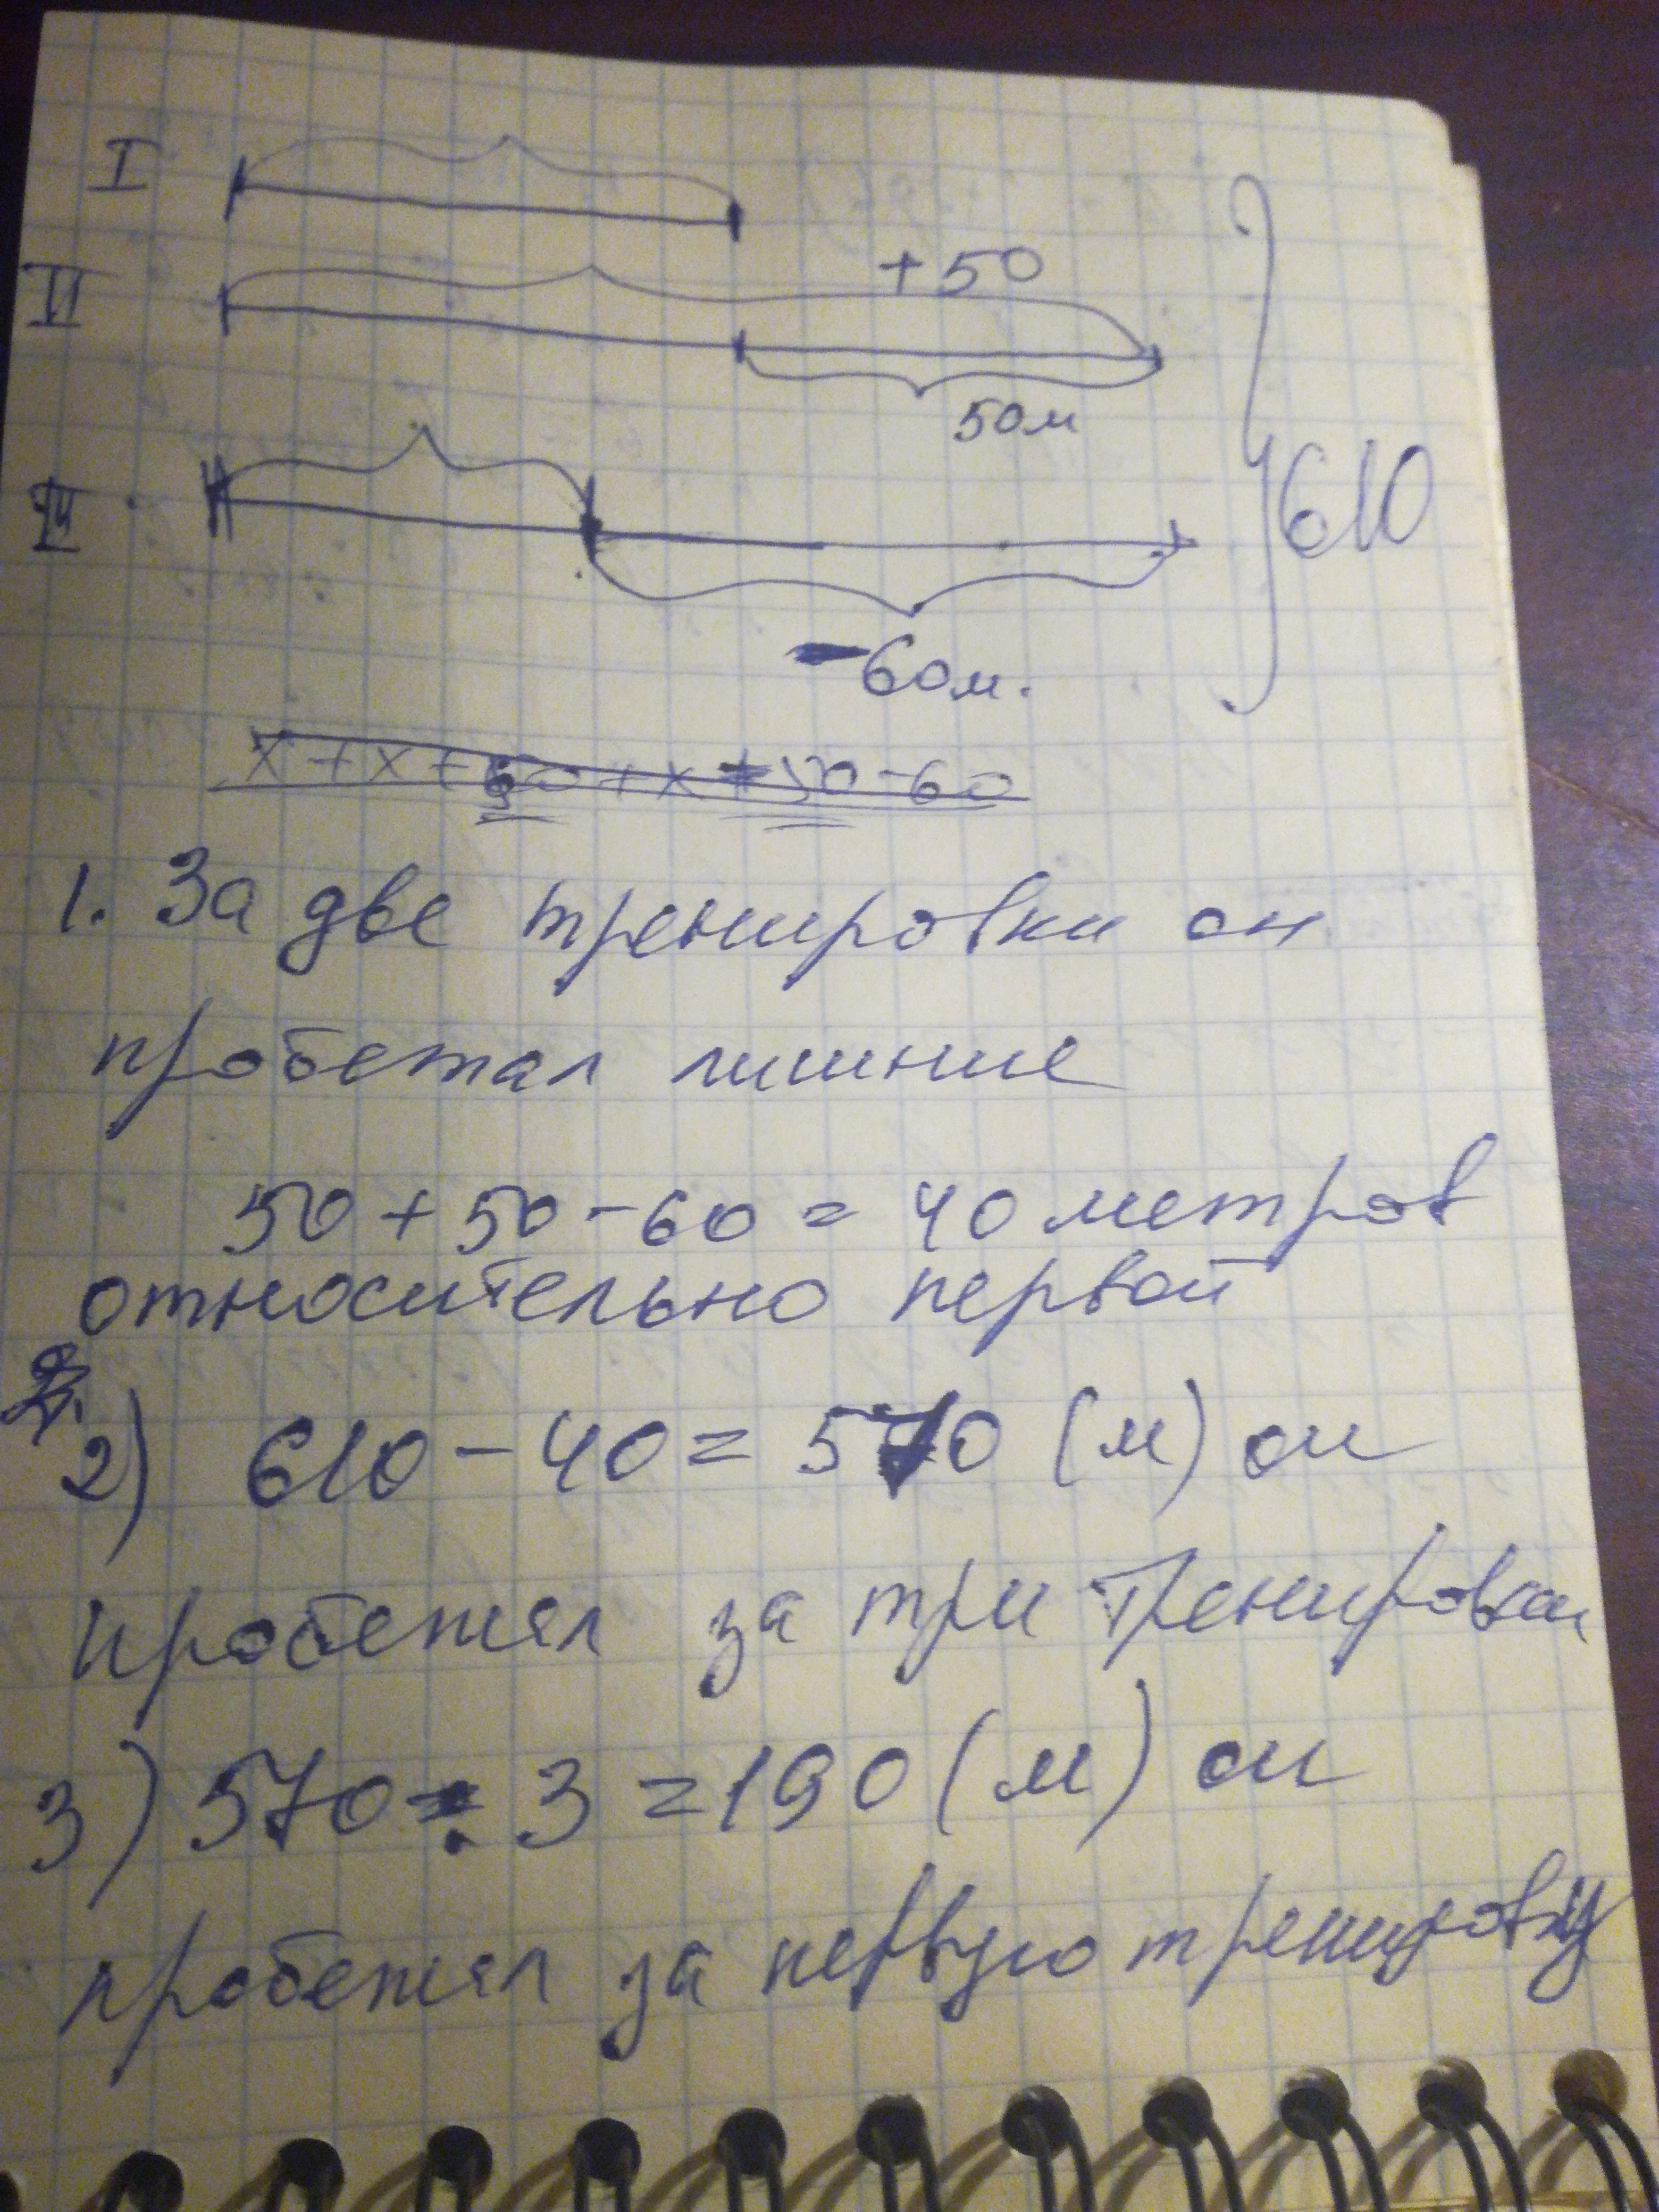 I
II
+50
50м
III
610
-60м.
x+x+50+x+50-60
1. За две тренировки он
пробежал лишние
50+50-60=40 метров
относительно первой
2) 610-40=570 (м) он
пробежал за три тренировки
3) 570:3=190 (м) он
пробежал за первую тренировку